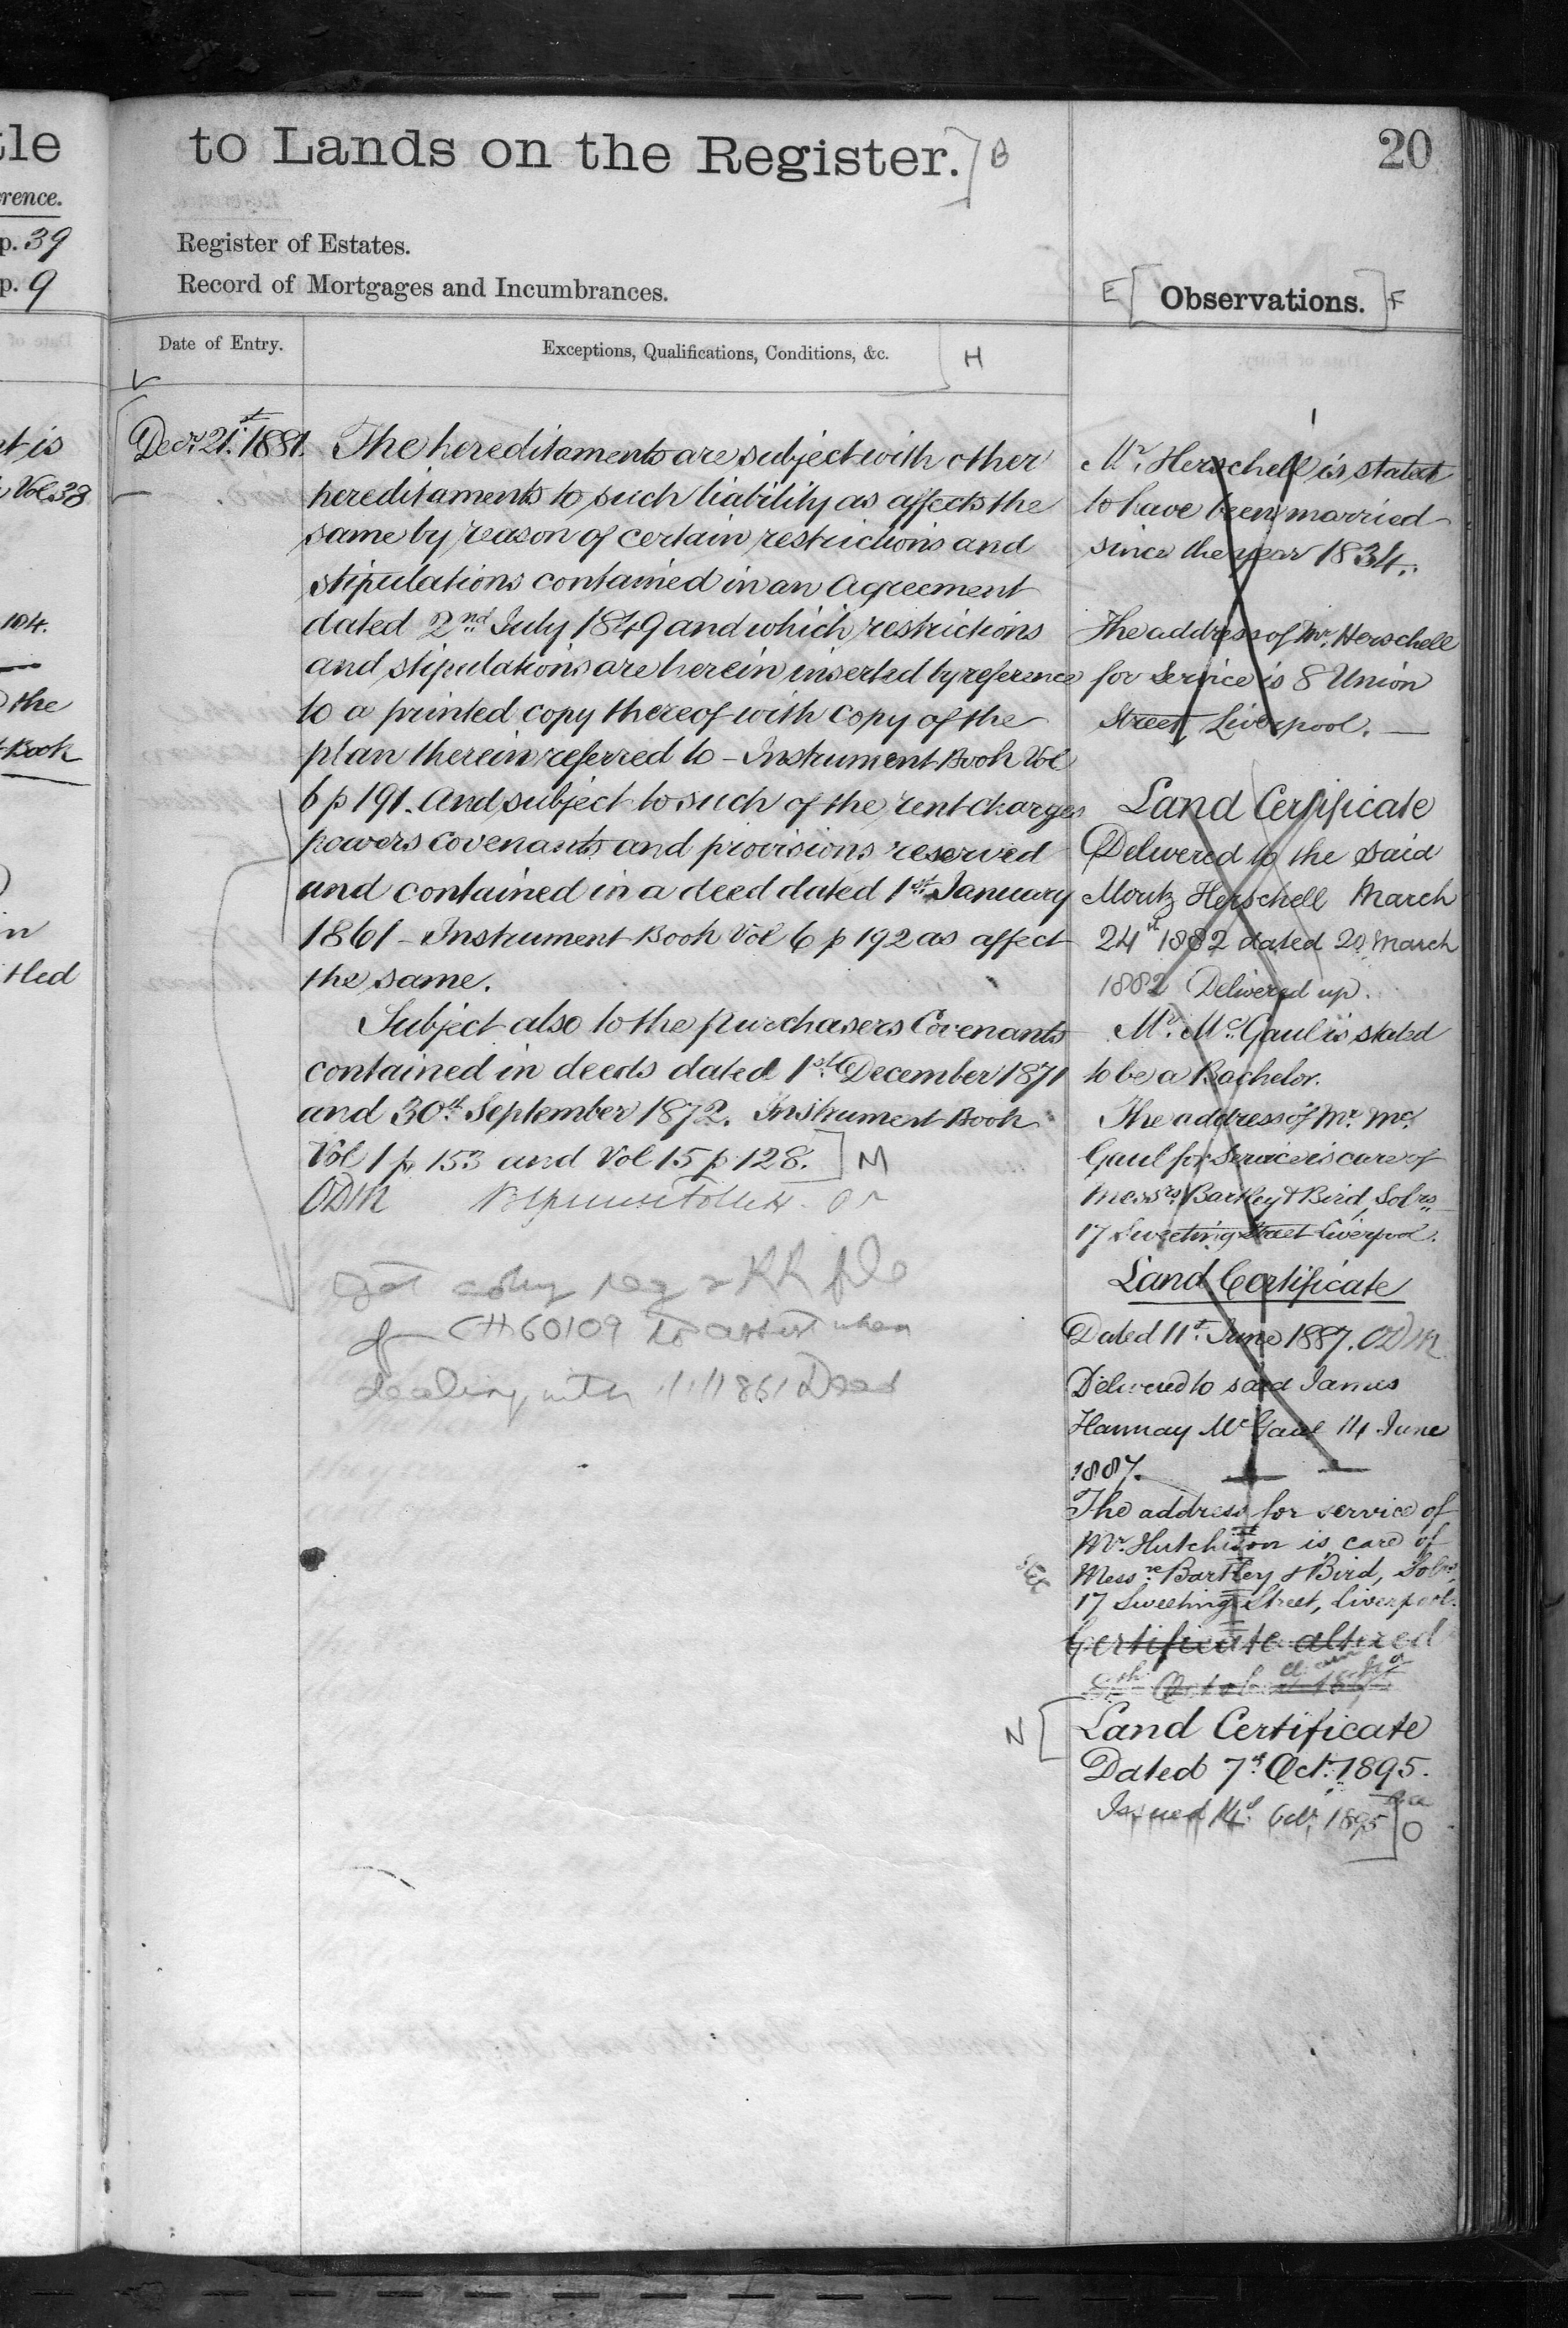 tle
rence.
p. 39
p. 9
nt is
Vol 38
104.
the
Book
in
tled
to Lands on the Register. ] B
20
Register of Estates.
Record of Mortgages and Incumbrances.
E [ Observations. ] F
Date of Entry.
Exceptions, Qualifications, Conditions, &c. ] H
Decr. 21st. 1881.
The hereditaments are subject with other
hereditaments to such liability as affects the
same by reason of certain restrictions and
stipulations contained in an Agreement
dated 2nd July 1849 and which restrictions
and stipulations are herein inserted by reference
to a printed copy thereof with copy of the
plan therein referred to - Instrument Book Vol
6 p 191. And subject to such of the rent charges
powers covenants and provisions reserved
and contained in a deed dated 1st January
1861 - Instrument Book Vol 6 p 192 as affect
the same.
Subject also to the purchasers Covenants
contained in deeds dated 1st December 1871
and 30th September 1872. Instrument Book
Vol 1 p 153 and Vol 15 p 128. ] M
ODM
Get copy reg & RR file
of CH60109 to assist when
dealing with 1/1/1861 Deed
Mr. Herschell is stated
to have been married
since the year 1834.
The address of Mr. Herschell
for Service is 8 Union
Street, Liverpool.
Land Certificate
Delivered to the said
Moritz Herschell March
24th 1882 dated 20 March
1882 Delivered up.
Mr. Mc.Gaul is stated
to be a Bachelor.
The address of Mr. Mc.
Gaul for Service is care of
Messrs. Bartley & Bird, Solrs.
17 Sweeting Street Liverpool.
Land Certificate
Dated 11th. June 1887. ODM.
Delivered to said James
Hannay McGaul 14 June
1887.
The address for service of
Mr. Hutchison is care of
Messrs. Bartley & Bird, Solrs.
17 Sweeting Street, Liverpool.
Certificate altered
8th October
N [ Land Certificate
Dated 7th Oct. 1895.
Issued 14th Oct. 1895 ] O